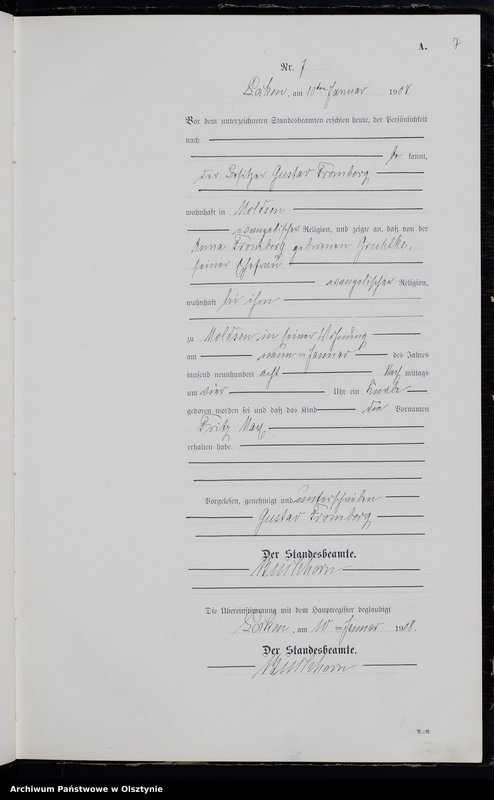 A. 7
Nr. 7
am 10ten Januar 1908.
Vor dem unterzeichneten Standesbeamten erschien heute, der Persönlichkeit
nach
kannt,
der Besitzer Gustav Fromberg
wohnhaft in Moldsen
evangelischer Religion, und zeigte an, daß von der
Anna Fromberg geborenen Gruhlke,
seiner Ehefrau
evangelischer Religion,
wohnhaft bei ihm
zu Moldsen in seiner Wohnung
am neun ten Januar des Jahres
tausend neunhundert acht Nach mittags
um vier Uhr ein Knabe
geboren worden sei und daß das Kind die Vornamen
Fritz Max
erhalten habe.
Vorgelesen, genehmigt und unterschrieben
Gustav Fromberg
Der Standesbeamte.
Die Übereinstimmung mit dem Hauptregister beglaubigt
am 10 ten Januar 1908.
Der Standesbeamte.
R.-R.
Archiwum Państwowe w Olsztynie